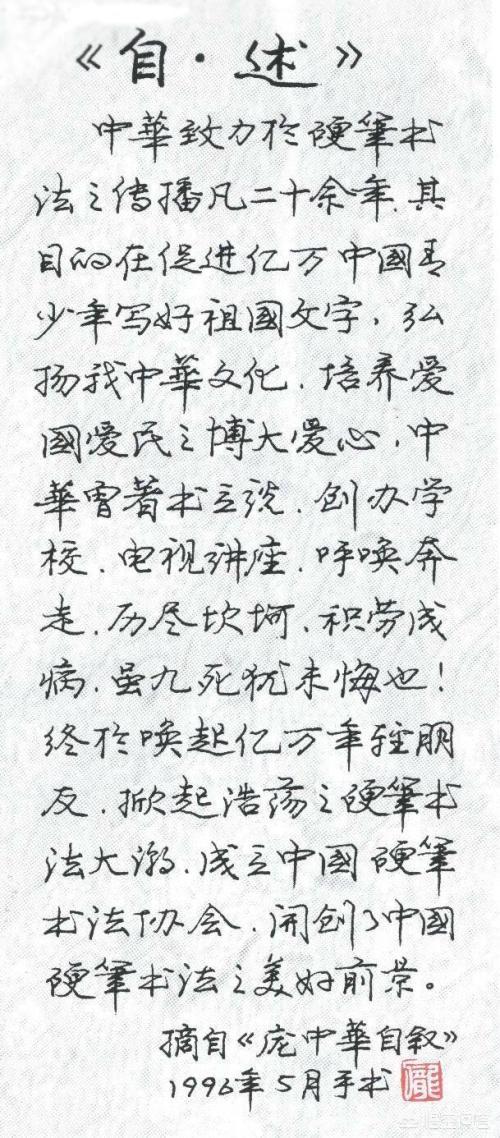 《自·述》
中華致力於硬筆书
法之传播凡二十余年、其
目的在促进亿万中國青
少年写好祖國文字，弘
扬我中華文化、培养爱
國爱民之博大爱心，中
華曾着书立说、创办学
校、电视讲座、呼唤奔
走、历尽坎坷、积劳成
病、虽九死犹未悔也！
终於唤起亿万年轻朋
友、掀起浩荡之硬筆书
法大潮、成立中國硬筆
书法协会、开创了中國
硬筆书法之美好前景。
摘自《庞中華自叙》
1996年5月手书